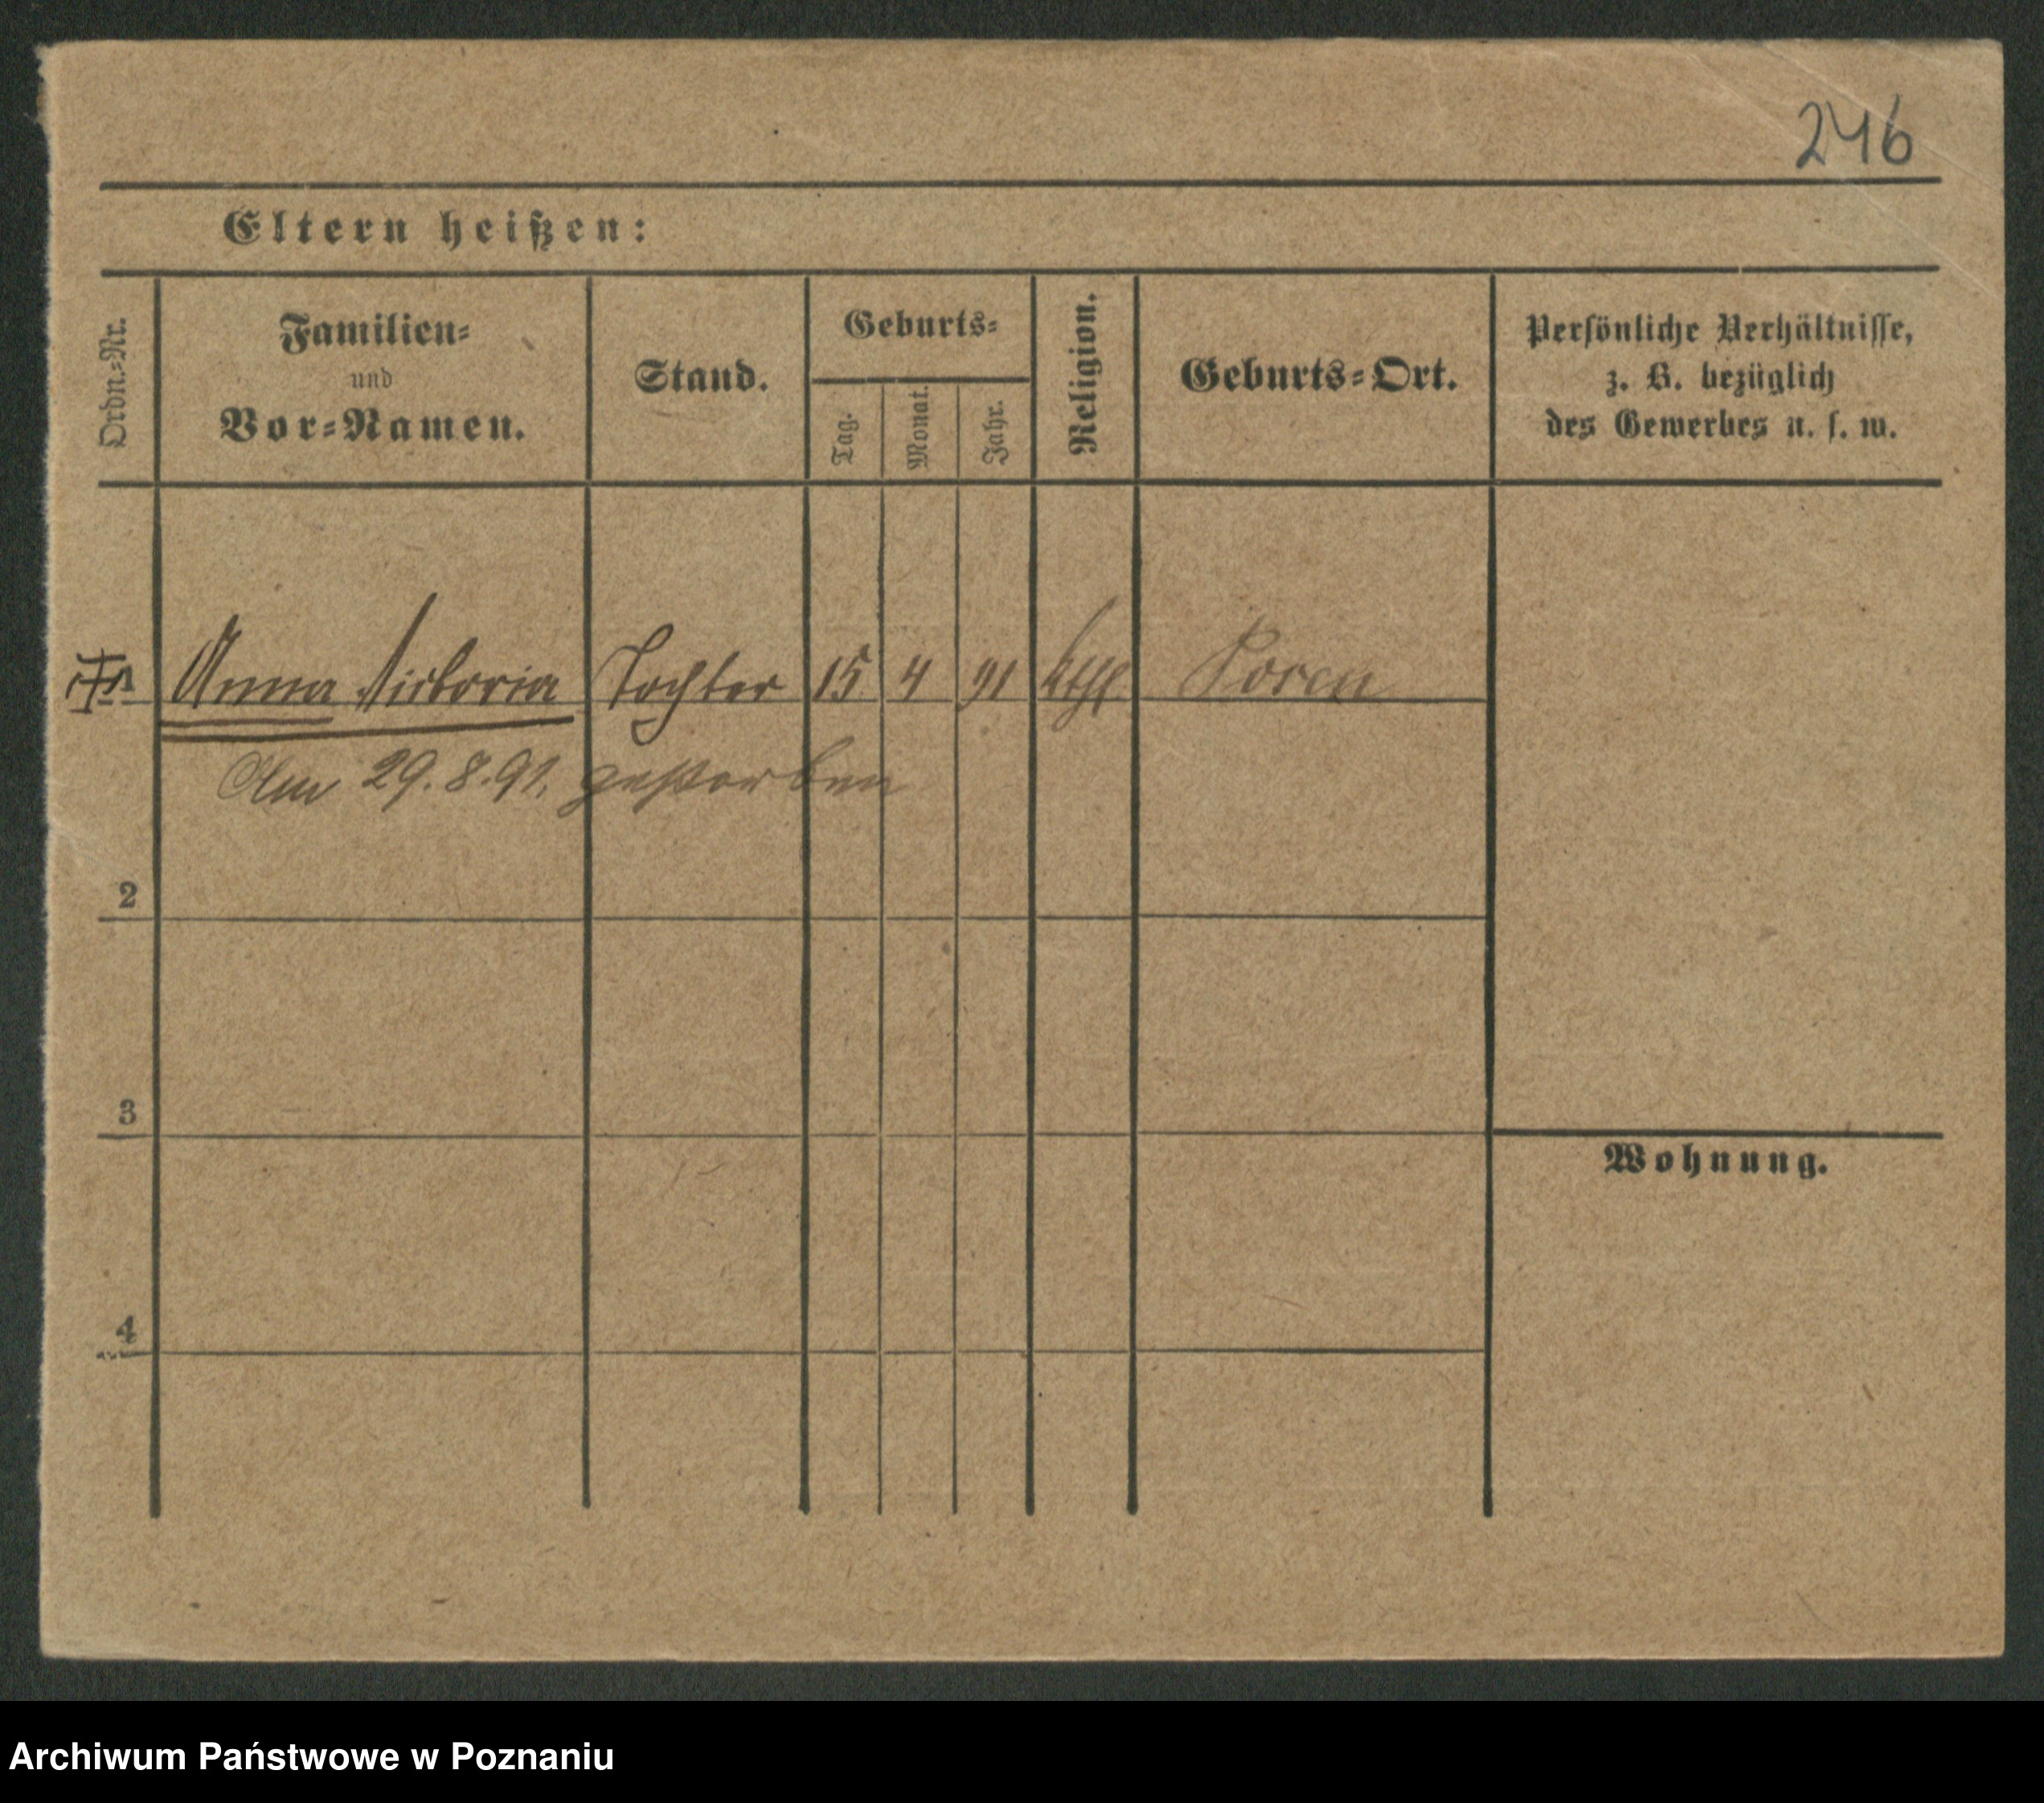 246
Eltern heißen:
Ordn.-Nr.
Familien-
und
Vor-Namen.
Stand.
Geburts-
Tag.
Monat.
Jahr.
Religion.
Geburts-Ort.
Persönliche Verhältnisse,
z. B. bezüglich
des Gewerbes u. s. w.
1 Anna Victoria Tochter 15 4 91 kath Posen
Am 29.8.91. gestorben
2
3
Wohnung.
4
Archiwum Państwowe w Poznaniu